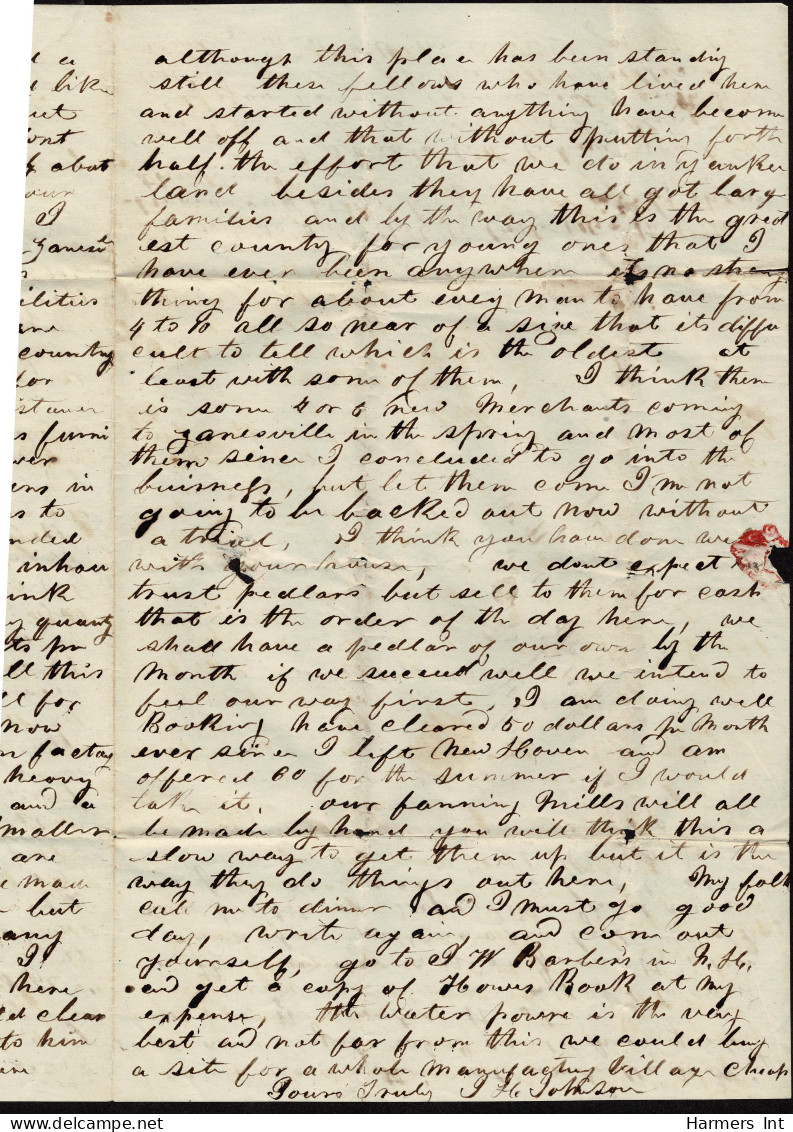 although this place has been standing
still these fellows who have lived here
and started without anything have become
well off and that without putting forth
half the effort that we do in Yankee
land besides they have all got large
families and by the way this is the great
est county for young ones that I
have ever been anywhere its no strange
thing for about every man to have from
4 to 10 all so near of a size that its diffi
cult to tell which is the oldest at
least with som of them, I think there
is some 4 or 6 new Merchants coming
to Zanesville in the spring and most of
them since I concluded to go into the
buisness, but let them come I'm not
going to be backed out now without
a trial, I think you have done well
with your house, we dont expect to
trust pedlars but sell to them for cash
that is the order of the day here, we
shall have a pedlar of our own by the
Month if we succeed well we intend to
feel our way first, I am doing well
Booking have cleared 50 dollars pr Month
ever since I left New Haven and am
offered 60 for the summer if I would
take it. our fanning Mills will all
be made by hand you will think this a
slow way to get them up but it is the
way they do things out here, My folks
call me to dinner and I must go good
day, write again, and come out
yourself, go to J W Barbers in N. H.
and get a copy of Howes Book at my
expense, the water powre is the very
best and not far from this we could buy
a site for a whole manufacturing Village cheap
Yours Truly J H Johnson
d a
like
out
dont
& about
our
I
Zanesv
ilities
are
country
for
istance
s furni
wer
ers in
s to
nded
inhau
ink
y quanty
ts pr
ll this
ll for
now
n factory
heavy
and a
smaller
are
e made
but
any
I
here
ld clear
to him
ine
Harmers Int